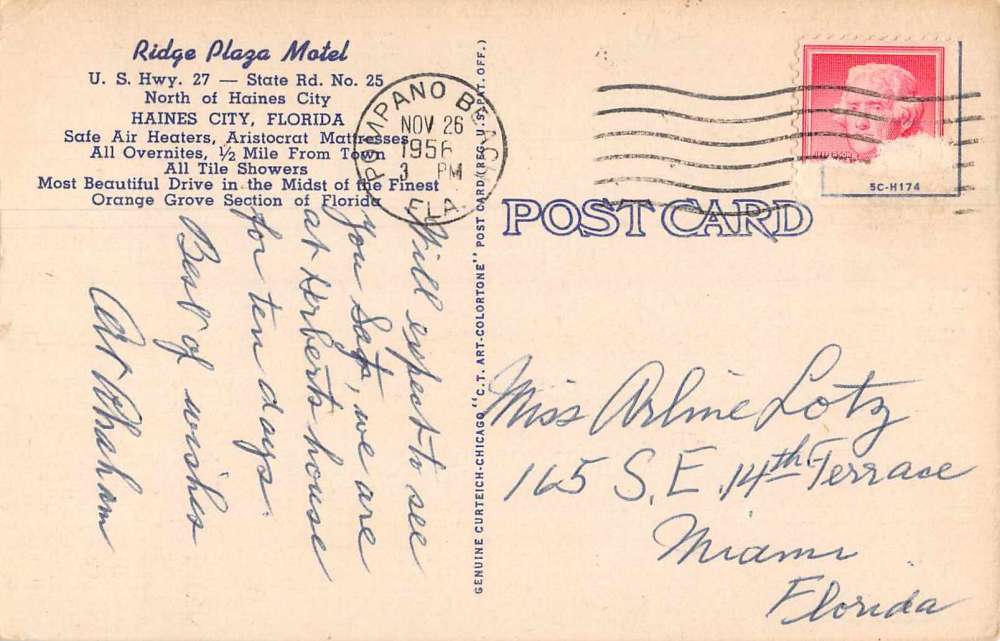 Ridge Plaza Motel
U. S. Hwy. 27 — State Rd. No. 25
North of Haines City
HAINES CITY, FLORIDA
Safe Air Heaters, Aristocrat Mattresses
All Overnites, ½ Mile From Town
All Tile Showers
Most Beautiful Drive in the Midst of the Finest
Orange Grove Section of Florida
POMPANO BEACH
NOV 26
1956
3 PM
FLA.
Will expect to see
you Sat., we are
at Herbert's house
for ten days.
Best of wishes
Art
GENUINE CURTEICH-CHICAGO "C.T. ART-COLORTONE" POST CARD (REG. U. S. PAT. OFF.)
5C-H174
POST CARD
Miss Arline Lotz
165 S.E. 14th Terrace
Miami
Florida